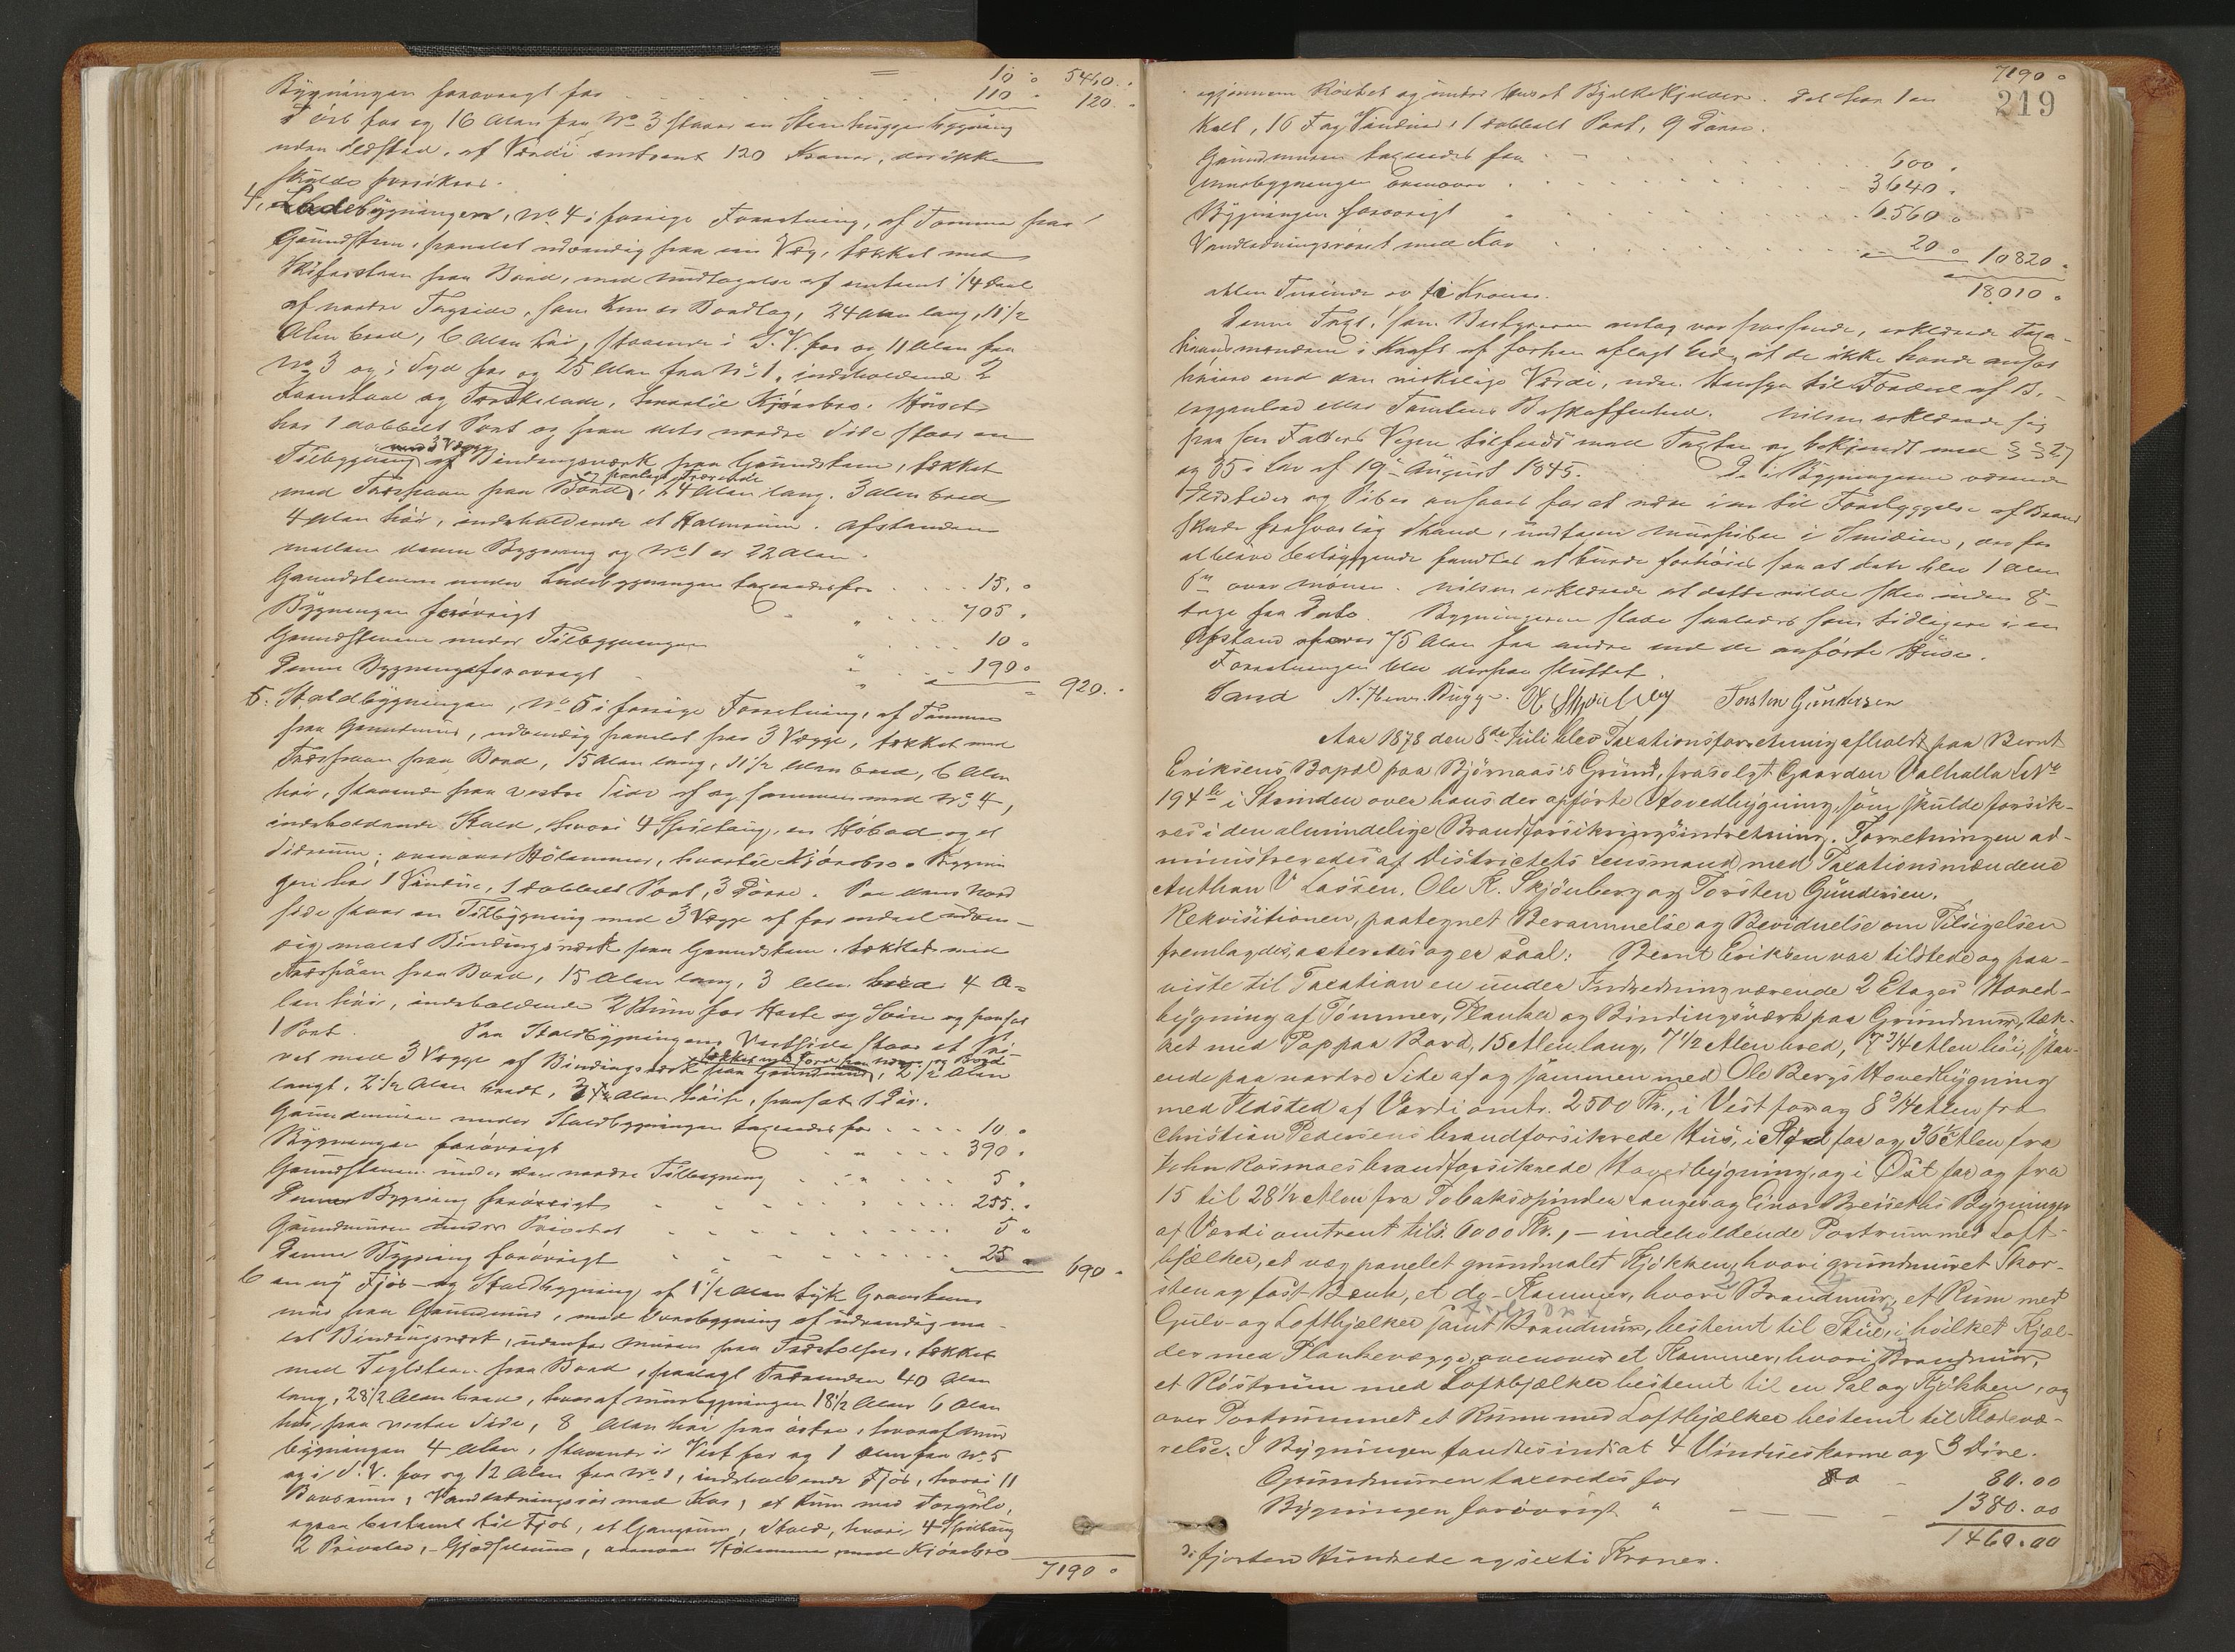 = 10 " 5460 "
Bygningen forøvrigt for 110 " 120 "
I Øst for og 16 Alen fra No 3 staaer en Steenhuggerbygning
uden Ildsted, af Værdi omtrent 120 Kroner, der ikke
skulde forsikres.
4, Ladebygningen, No 4 i forrige Forretning, af Tømmer paa
Grundsteen, panelet udvendig paa en Væg, tækket med
Skifersteen paa Bord, med Undtagelse af omtrent 1/4 Deel
af nordre Tagside, som kun er Bordtag, 24 Alen lang, 11 1/2
Alen bred, 6 Alen høi, staaende i S.V. for og 11 Alen fra
No 3 og i Syd for og 25 Alen fra No 1, indeholdende 2
Kornstaal og Tærskelade, hvortil Kjørebro. Huset
har 1 dobbelt Port og paa dets nordre Side staar en
Tilbygning med 3 Vægge af Bindingsværk paa Grundsteen, tækket
med Træspaan paa Bord, og paalagt Trærende, 24 Alen lang, 3 Alen bred
4 Alen høi, indeholdende et Halmrum. Afstanden
mellem denne Bygning og No 1 er 22 Alen.
Grundstenene under Ladebygningen taxeredes for 15 "
Bygningen forøvrigt " 705 "
Grundstenene under Tilbygningen 10 "
Denne Bygning forøvrigt " 190 " 920 "
5. Staldbygningen, No 5 i forrige Forretning, af Tømmer
paa Grundmur, udvendig panelet paa 3 Vægge, tækket med
Træspaan paa Bord, 15 Alen lang, 11 1/2 Alen bred, 6 Alen
høi, staaende paa vestre Side af og sammen med No 4,
indeholdende Stald, hvori 4 Spiltaug, en Høbod og et
Siderum; ovenover Hølemmer, hvortil Kjørebro. Bygnin-
gen har 1 Vindue, 1 dobbelt Port, 3 Døre. Paa dens Nord
side staar en Tilbygning med 3 Vægge af for endeel udven-
dig malet Bindingsværk paa Grundsteen, tækket med
Træspaan paa Bord, 15 Alen lang, 3 Alen bred 4 A-
len høi, indeholdende 2 Rum for Heste og Sviin og forsat
1 Port. Paa Staldbygningens Vestside staar et Pri-
vet med 3 Vægge af Bindingsværk paa Grundmur, 2 1/2 Alen
langt, 2 1/2 Alen bredt, Alen høit, forsat 1 Dør.
Grundmuren under Staldbygningen taxeredes for 10 "
Bygningen forøvrigt " 390 "
Grundstenen under den nordre Tilbygning " 5 "
Denne Bygning forøvrigt 255 "
Grundmuren under Privetet 5 "
Denne Bygning forøvrigt 25 " 690 "
6 en ny Fjøs- og Staldbygning af 1 1/2 Alen tyk Graasteens
mur paa Grundmur, med Overbygning af udvendig ma-
let Bindingsværk, udenfor Muren paa Træstolper, tækket
med Teglsteen paa Bord, paalagt Trærender 40 Alen
lang, 28 1/2 Alen bred, hvoraf Murbygningen 18 1/2 Alen 6 Alen
høi paa vestre Side, 8 Alen høi paa østre, hvoraf Mur
bygningen 4 Alen, staaende i Vest for og 1 Alen fra No 5
og i S.V. for og 12 Alen fra No 1, indeholdende Fjøs, hvori 11
Baasrum, Vandledningsrør med Kar, et Rum med
ogsaa bestemt til Fjøs, et Gangrum, Stald, hvori 4 Spiltaug
2 Priveter, Gjødselrum, ovenover Hølemmer med Kjørebro
7190 "
7190 "
219
igjennem Røstet og under Huset Bjelkekjelder. Det har 1 en
kelt, 16 Fag Vinduer, 1 dobbelt Port, 9 Døre.
Grundmuren taxeredes for 600 "
Murbygningen ovenover 3640 "
Bygningen forøvrigt " 6560 "
Vandledningsrøret med Kar 20 " 10820 "
18010 "
atten Tusinde og ti Kroner.
Denne Taxt, som Bestyreren antog var passende, erklærede Taxa-
tionsmændene i Kraft af forhen aflagt Eed, at de ikke havde ansat
høiere end den virkelige Værdi, uden Hensyn til Fordeel af B.
liggenhed eller Tomtens Beskaffenhed. Nilsen erklærede sig
paa sin Faders Vegne tilfreds med Taxten og bekjendt med §§ 27
og 35 i Lov af 19 August 1845. De i Bygningerne værende
Ildsteder og Piber ansaaes for at være i en til Forebyggelse af Brand
skade forsvarlig Stand, undtagen Murpiben i Smidien, der for
at blive betryggende fandtes at burde forhøies saa at dette blev 1 Alen
6" over Mønen. Nilsen erklærede at dette vilde skee inden 8
Dage fra Dato. Bygningerne stode saaledes som tidligere i en
Afstand af over 75 Alen fra andre end de anførte Huse.
Forretningen blev derpaa sluttet.
Sand N. Henr. Bugge. O K Skjønberg Torsten Gundersen
Aar 1878 den 8de Juli blev Taxationsforretning afholdt paa Bernt
Eriksens Bopæl paa Bjørnaasis Grund, frasolgt Gaarden Valhalla LNo
194 b i Strinden over hans der opførte Hovedbygning, som skulde forsik-
res i den almindelige Brandforsikringsindretning. Forretningen ad-
ministreredes af Districtets Lensmand med Taxationsmændene
Anthon V Lassen, Ole K. Skjønberg og Torsten Gundersen.
Rekvisitionen, paategnet Berammelse og Bevidnelse om Tilsigelsen
fremlagdes, acteredes og er saal: Bernt Eriksen var tilstede og paa-
viste til Taxation en under Indredning værende 2 Etages Hoved-
bygning af Tømmer, Planker og Bindingsværk paa Grundmur, tæk-
ket med Pap paa Bord, 15 Alen lang, 7 1/2 Alen bred, 7 3/4 Alen høi, staa-
ende paa nordre Side af og sammen med Ole Bergs Hovedbygning
med Ildsted af Værdi omtr. 2500 Kr., i Vest for og 8 3/4 Alen fra
Christian Pedersens brandforsikrede Hus, i Nord for og 36 1/2 Alen fra
John Rosmoes brandforsikrede Hovedbygning, og i Øst for og fra
15 til 28 1/2 Alen fra Tobaksspinder Langes og Einar Breiseths Bygninger
af Værdi omtrent tils. 6000 Kr., – indeholdende Portrum med Loft-
bjælker, et væg panelet grundmalet Kjøkken, hvori grundmuret Skor-
sten og fast Bænk, et do- Kammer, hvori Brandmur, et Rum med
Gulv- og Loftbjælker samt Brandmur, bestemt til Stue, i hvilket Kjæl-
der med Plankevægge, ovenover et Kammer, hvori Brandmur,
et Røstrum med Loftbjælker bestemt til en Sal og Kjøkken, og
over Portrummet et Rum med Loftbjælker bestemt til Kladevæ-
relse. I Bygningen fandtes indsat 4 Vindueskarme og 3 Døre.
Grundmuren taxeredes for 80.00
Bygningen forøvrigt " 1380.00
1460.00
Di fjorten Hundrede og sexti Kroner.